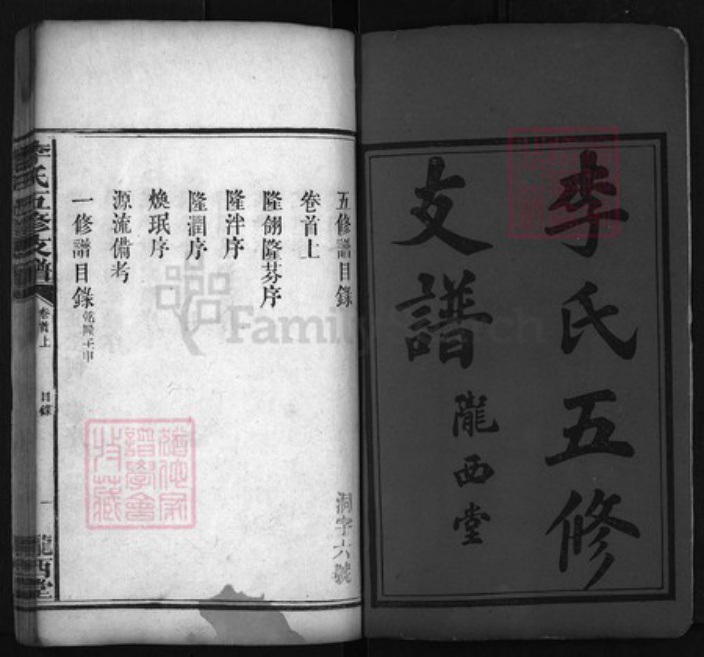 李氏五修
支譜
隴西堂
五修譜目錄
洞字六號
卷首上
隆翎隆芬序
隆泮序
隆潤序
煥珉序
源流備考
一修譜目錄乾隆壬申
李氏五修支譜
卷首上
目錄
一
隴西堂
FamilySearch